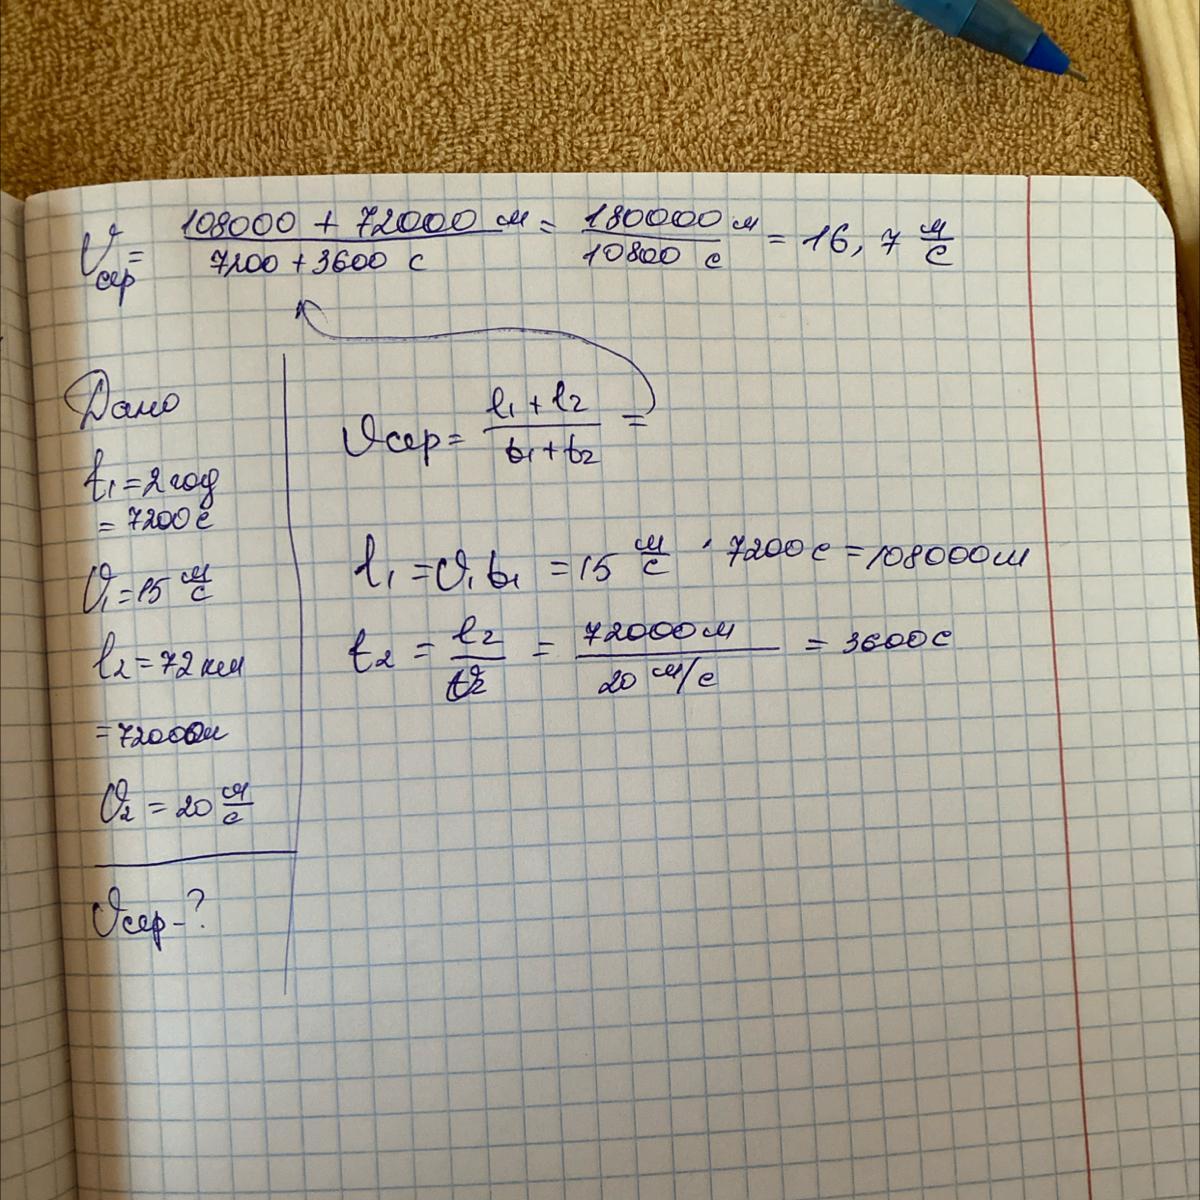 υсер = (108000 + 72000 м)/(7200 + 3600 с) = 180000 м/10800 с = 16,7 м/с
Дано
t₁ = 2 год
= 7200 с
υ₁ = 15 м/с
l₂ = 72 км
= 72000 м
υ₂ = 20 м/с
υсер - ?
υсер = (l₁ + l₂)/(t₁ + t₂) =
l₁ = υ₁t₁ = 15 м/с · 7200 с = 108000 м
t₂ = l₂/υ₂ = 72000 м/20 м/с = 3600 с